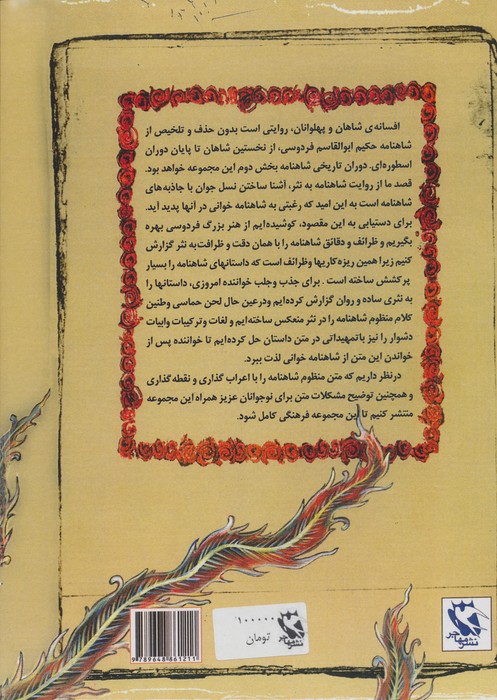 افسانه‌ی شاهان و پهلوانان، روایتی است بدون حذف و تلخیص از
شاهنامه حکیم ابوالقاسم فردوسی، از نخستین شاهان تا پایان دوران
اسطوره‌ای. دوران تاریخی شاهنامه بخش دوم این مجموعه خواهد بود.
قصد ما از روایت شاهنامه به نثر، آشنا ساختن نسل جوان با جاذبه‌های
شاهنامه است به این امید که رغبتی به شاهنامه خوانی در آنها پدید آید.
برای دستیابی به این مقصود، کوشیده‌ایم از هنر بزرگ فردوسی بهره
بگیریم و ظرائف و دقائق شاهنامه را با همان دقت و ظرافت به نثر گزارش
کنیم زیرا همین ریزه‌کاریها وظرائف است که داستانهای شاهنامه را بسیار
پر کشش ساخته است. برای جذب وجلب خواننده امروزی، داستانها را
به نثری ساده و روان گزارش کرده‌ایم ودرعین حال لحن حماسی وطنین
کلام منظوم شاهنامه را در نثر منعکس ساخته‌ایم و لغات وترکیبات وابیات
دشوار را نیز باتمهیداتی در متن داستان حل کرده‌ایم تا خواننده پس از
خواندن این متن از شاهنامه خوانی لذت ببرد.
درنظر داریم که متن منظوم شاهنامه را با اعراب گذاری و نقطه گذاری
و همچنین توضیح مشکلات متن برای نوجوانان عزیز همراه این مجموعه
منتشر کنیم تا این مجموعه فرهنگی کامل شود.
۱۰۰۰۰۰۰
تومان
نشر مهاجر
9789648861211